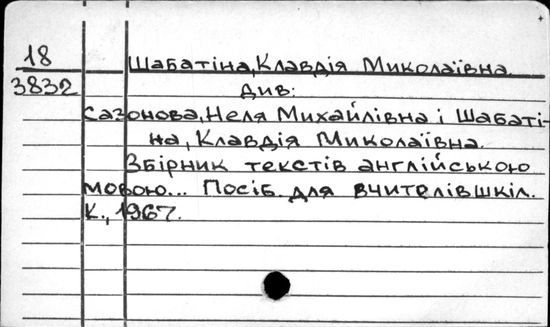 18
3832
Шабатіна, Клавдія Миколаївна.
Див:
Сазонова, Неля Михайлівна і Шабаті-
на, Клавдія Миколаївна.
Збірник текстів англійською
мовою... Посіб. для вчителів шкіл.
К., 1967.